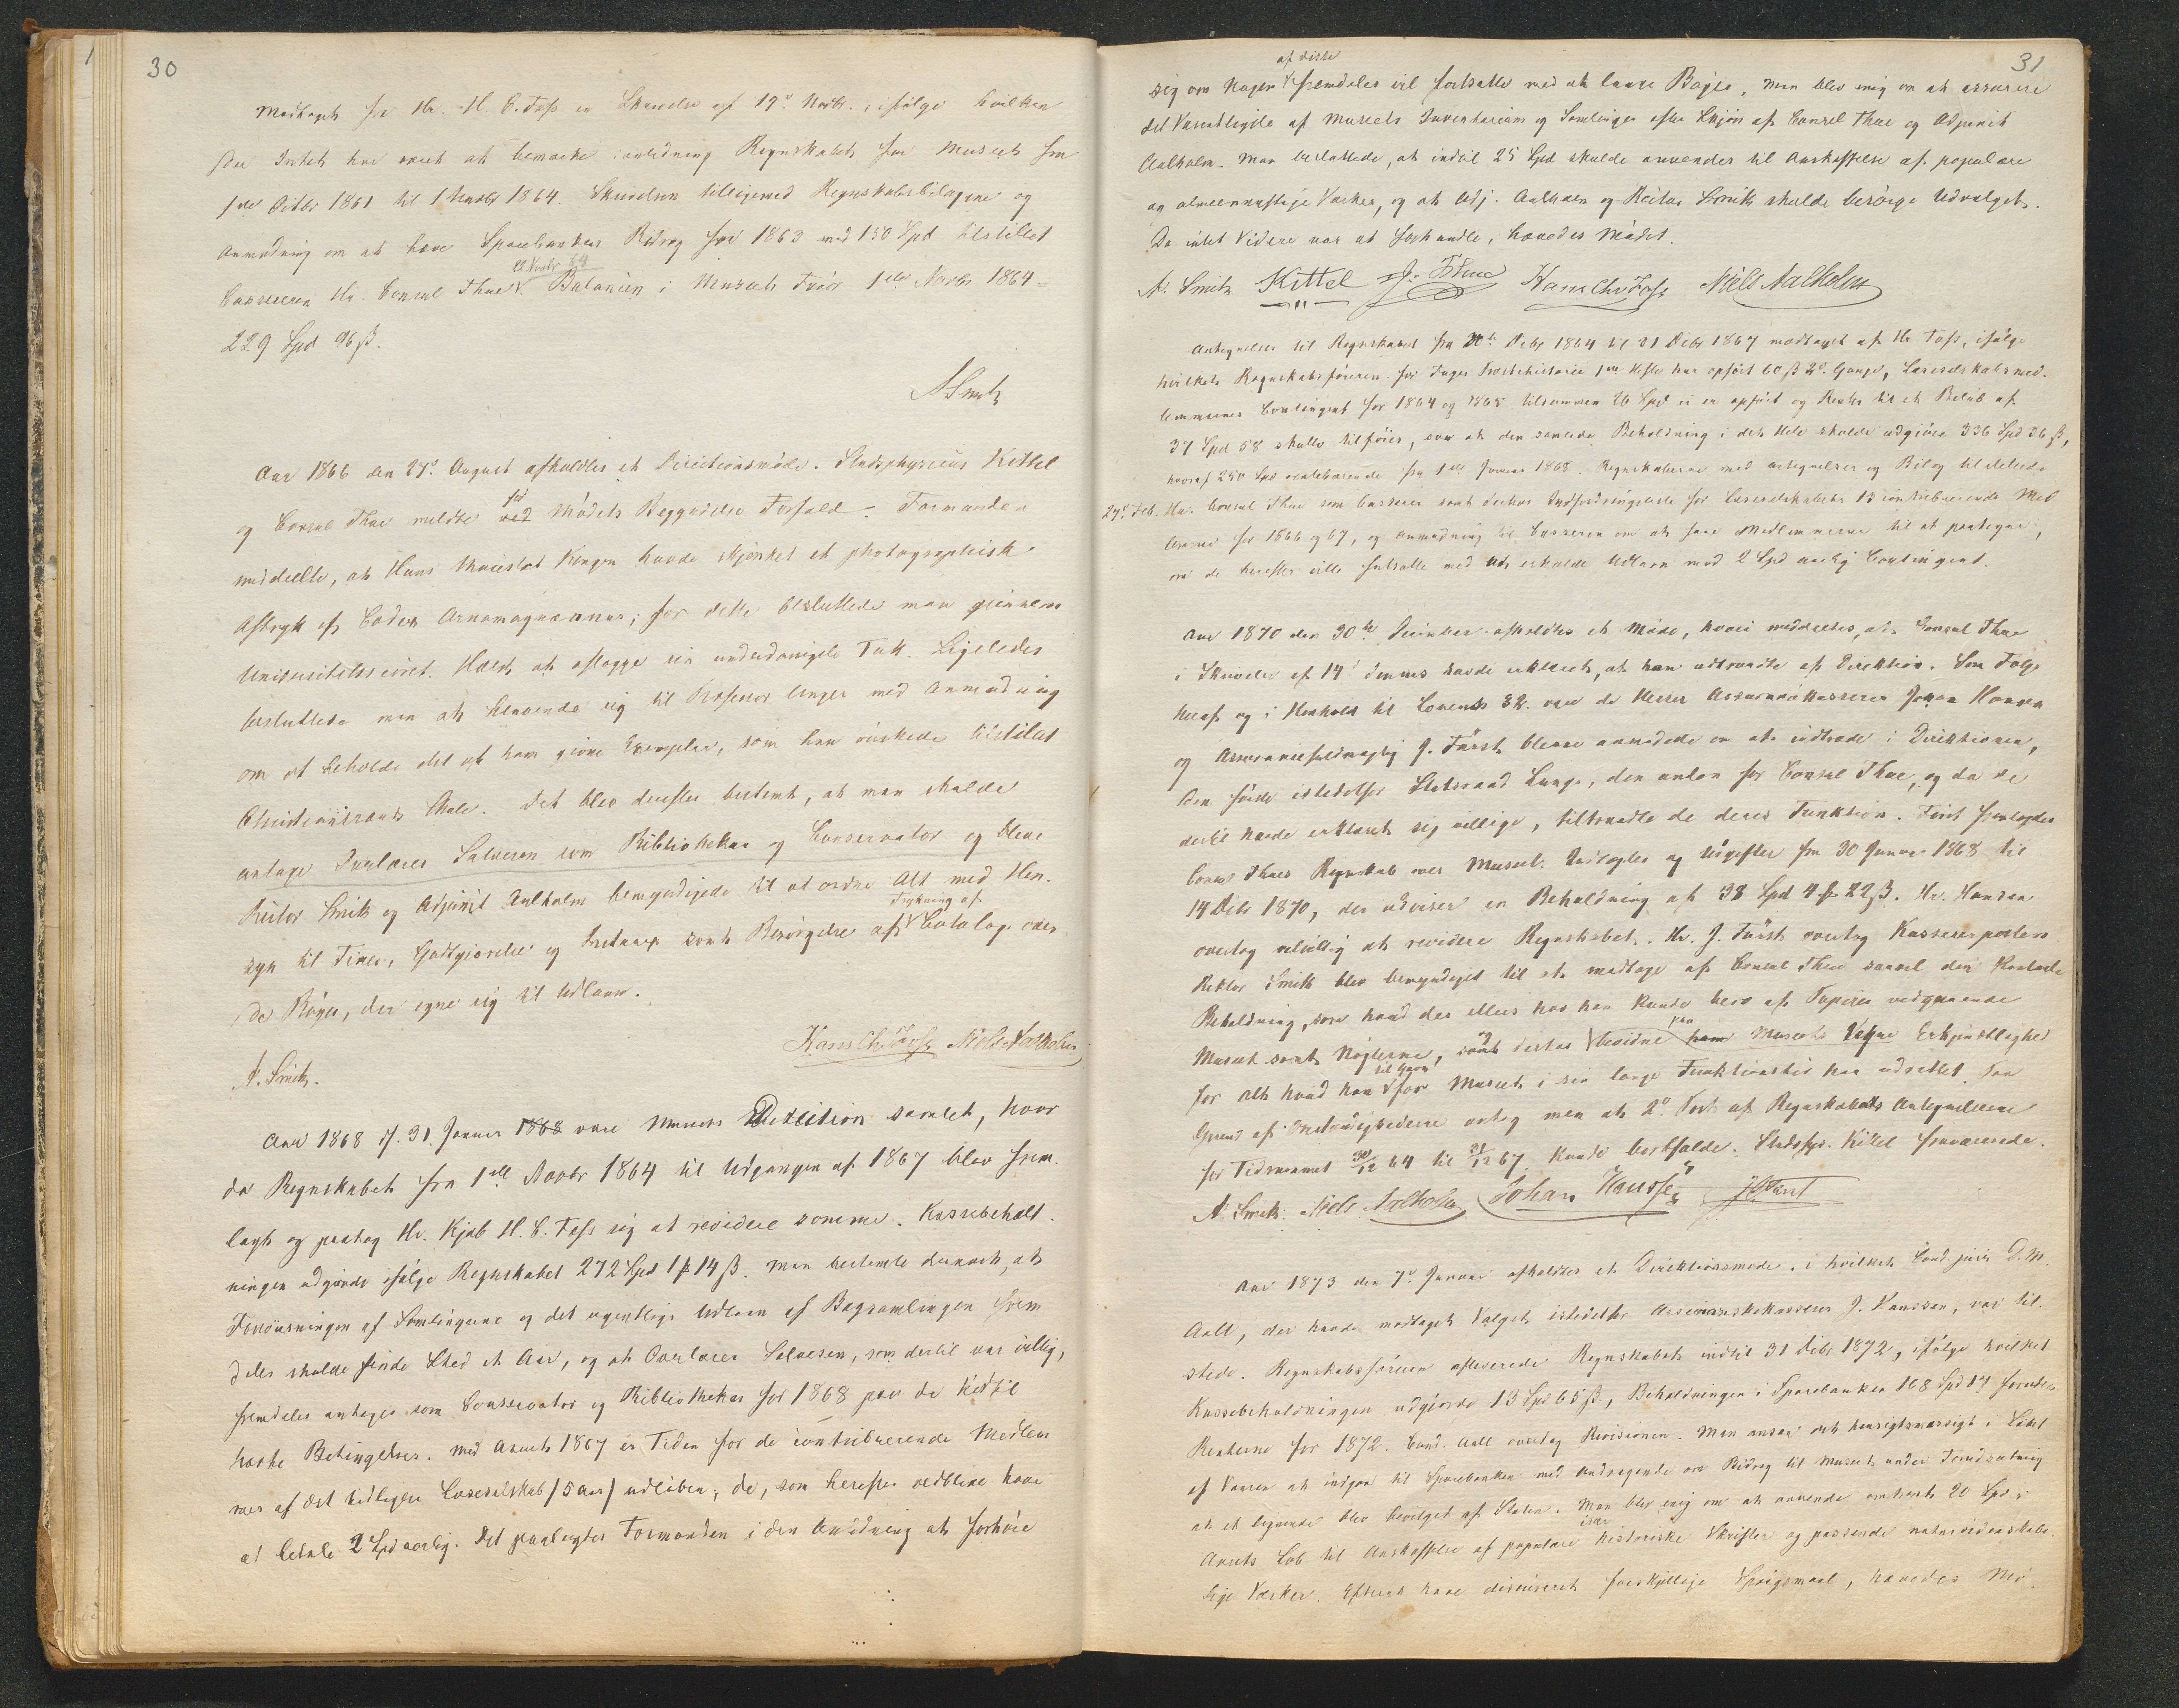 30
Modtaget fra Hr. H. C. Foss en Skrivelse af 19de Novbr. ifølge hvilken
der Intet har været at bemærke i anledning Regnskabet for Museet fra
1ste Octbr 1861 til 1 Novbr 1864. Skrivelsen tilligemed Regnskabsbilagene og
Anmodning om at hæve Sparebankens Bidrag for 1863 med 150 Spd tilstillet
22 Novbr 64
Casserern Hr. Consul Thue. Balancen i Museets Favør 1ste Novbr 1864 =
229 Spd 96 ß.
A Smith
Aar 1866 den 27de August afholdtes et Directionsmøde. Stadsphysicus Kittel
før
og Consul Thue meldte ved Mødets Begyndelse Forfald. – Formanden
meddeelte, at Hans Majestæt Kongen havde skjænket et photographisk
Aftryk af Codex Arnamagnæanus; for dette besluttede man gjennem
Universitetssecret. Holst at aflægge sin underdanigste Tak. Ligeledes
besluttede man at henvende sig til Professor Unger med Anmodning
om at beholde det af ham givne Exemplar, som han ønskede tilstillet
Christianssands Skole. Det blev derefter bestemt, at man skulde
antage Overlærer Salvesen som Bibliothekar og Conservator og bleve
Rector Smith og Adjunct Aalholm bemyndigede til at ordne Alt med Hen-
Trykning af
syn til Timer, Godtgjørelse og Instrux samt Besørgelse af Catalog over
de Bøger, der egne sig til Udlaan.
Hans Chr Foss Niels Aalholm
A. Smith.
Aar 1868 d. 31. Januar 1868 var Museets Direction samlet, hvor
da Regnskabet fra 1ste Novbr 1864 til Udgangen af 1867 blev frem-
lagt og paatog Hr. Kjøb H. C. Foss sig at revidere somme. Kassebehold-
ningen udgjorde ifølge Regnskabet 272 Spd 1 ƒ 14 ß. Man bestemte dernæst, at
Forevisningen af Samlingerne og det ugentlige Udlaan af Bogsamlingen frem-
deles skulde finde Sted et Aar, og at Overlærer Salvesen, som dertil var villig,
fremdeles antages som Conservator og Bibliothekar for 1868 paa de hidtil
havte Betingelser. Med Aaret 1867 er Tiden for de contribuerende Medlem-
mer af det tidligere Læseselskab (5 Aar) udløben; de, som herefter vedblive have
at betale 2 Spd aarlig. Det paalagdes Formanden i den Anledning at forhøre
31
af disse
sig om Nogen fremdeles vil fortsætte med at laane Bøger. Man blev enig om at assurere
det Væsentligste af Museets Inventarium og Samlinger efter Skjøn af Consul Thue og Adjunct
Aalholm. Man besluttede, at indtil 25 Spd skulde anvendes til Anskaffelse af populære
og almeennyttige Værker, og at Adj. Aalholm og Rector Smith skulde besørge Udvalget.
Da intet Videre var at forhandle, hævedes Mødet.
A. Smith Kittel J. Thue Hans Chr Foss Niels Aalholm
Antegnelser til Regnskabet fra Decbr 1864 til 31 Decbr 1867 modtaget af Hr Foss, ifølge
hvilket Regnskabsføreren for Fayes Norgeshistorie 1ste Hefte har opført 60 ß 2de Gange, Læseselskabsmed-
lemmernes Contingent for 1864 og 1865 tilsammen 26 Spd ei er opført og Renter til et Beløb af
37 Spd 58 skulle tilføies, saa at den samlede Beholdning i det Hele skulde udgjøre 336 Spd 36 ß,
hvoraf 250 Spd rentebærende fra 1ste Januar 1868. Regnskaberne med Antegnelser og Bilag tilstillede
27de Feb. Hr. Consul Thue som Casserer samt derhos Indfordringsliste for Læseselskabets 13 contribuerende Med-
lemmer for 1866 og 67, og Anmodning til Casserern om at faae Medlemmerne til at paategne,
om de herefter ville fortsætte med at erholde Udlaan mod 2 Spd aarlig Contingent.
Aar 1870 den 30te December afholdtes et Møde, hvori meddeeltes, at Consul Thue
i Skrivelse af 14de dennes havde erklæret, at han udtraadte af Direktion. Som Følge
heraf og i Henhold til Lovenes § 2. vare de Herrer Assurancekasserer Johan Hansen
og Assurancefuldmægtig J. Fürst blevne anmodede om at indtræde i Direktionen,
den første istedetfor Statsraad Lange, den anden for Consul Thue, og da de
dertil havde erklæret sig villige, tiltraadte de deres Funktion. Først fremlagdes
Consul Thues Regnskab over Museets Indtægter og Udgifter fra 30 Januar 1868 til
14 Decbr 1870, der udviser en Beholdning af 38 Spd 4 ƒ 22 ß. Hr. Hansen
overtog velvillig at revidere Regnskabet. Hr. J. Fürst overtog Kassererposten.
Rektor Smith blev bemyndiget til at modtage af Consul Thue saavel den kontante
Beholdning, som hvad der ellers hos ham kunde bero af Papirer vedgaaende
og paa
Museet samt Nøglerne, samt derhos bevidne ham Museets Vegne Erkjendtlighed
til Gavn
for Alt hvad han for Museet i sin lange Funktionstid har udrettet. Paa
Grund af Omstændighederne antog man at 2den Post af Regnskabets Antegnelserne
for Tidsrummet 30/12 64 til 31/12 67. kunde bortfalde. Stadsfys. Kittel fraværende.
A Smith. Niels Aalholm Johan Hanssen J Fürst
Aar 1873 den 7de Januar afholdtes et Direktionsmøde, i hvilket Cand. juris D. M.
Aall, der havde modtaget Valget istedetfor Assurancekasserer J. Hanssen, var til-
stede. Regnskabsføreren afleverede Regnskabet indtil 31 Decbr 1872, ifølge hvilket
Kassebeholdningen udgjorde 13 Spd 65 ß, Beholdningen i Sparebanken 168 Spd 17 foruden
Renterne for 1872. Cand. Aall overtog Revisionen. Man ansaa det hensigtsmæssigt i Løbet
af Vaaren at indgaa til Sparebanken med Andragende om Bidrag til Museet under Forudsætning
at et lignende blev bevilget af Staten. Man blev enig om at anvende omtrent 20 Spd i
især
Aarets Løb til Anskaffelse af populære historiske Skrifter og passende naturvidenskabe-
lige Værker. Efterat have discuteret forskjellige Spørgsmaal, hævedes Mø-